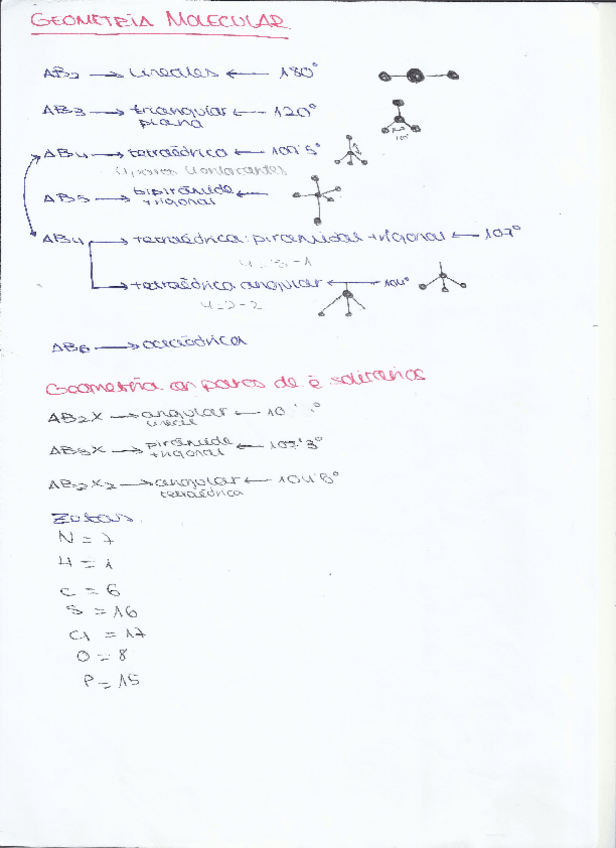 GEOMETRÍA MOLECULAR.
AB2 → lineales ← 180°
AB3 → triangular ← 120°
plana
AB4 → tetraédrica ← 109'5°
AB5 → bipirámide ←
trigonal
AB4 → tetraédrica: piramidal trigonal ← 107°
4-3-1
→ tetraédrica angular ← 104°
4-2-2
AB6 → octaédrica
Geometría con pares de e solitarios
AB2X → angular ←
AB3X → pirámide ← 107'3°
trigonal
AB2X2 → angular ← 104'5°
tetraédrica
N = 7
H = 1
C = 6
S = 16
Cl = 17
O = 8
P = 15